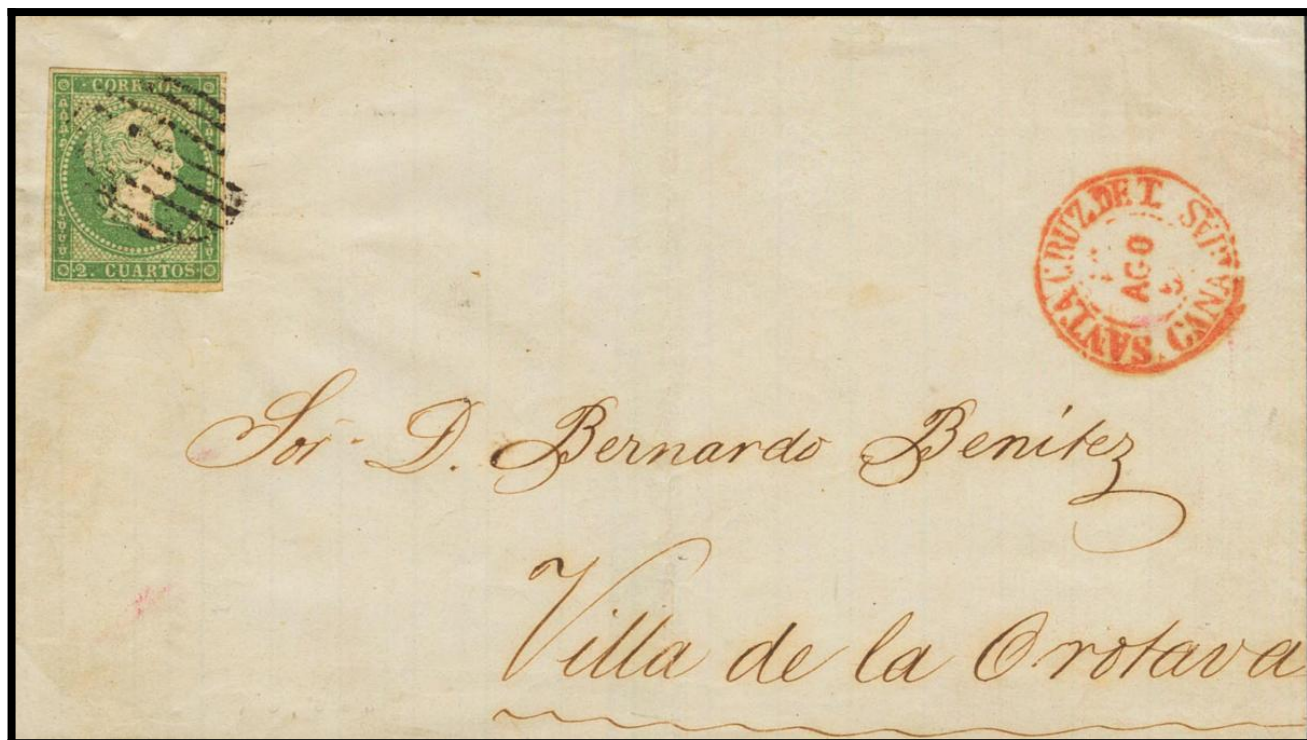 CORREOS
2. CUARTOS
SANTA CRUZ DE T.
AGO
Sor. D. Bernardo Benítez
Villa de la Orotava